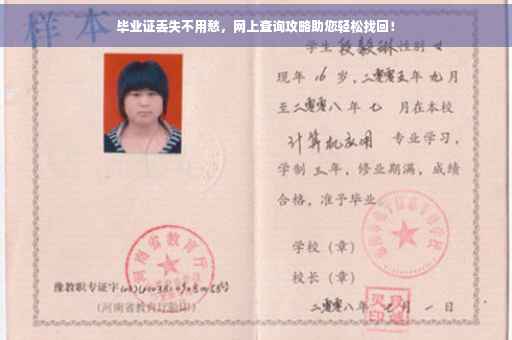 毕业证丢失不用愁，网上查询攻略助您轻松找回！
样本
学生 段毅琳 性别 女
现年 16 岁，二零零五年 九 月
至二零零八年 七 月在本校
计算机应用 专业学习，
学制 三 年，修业期满，成绩
合格，准予毕业。
学校（章）
校长（章）
豫教职专证字
（河南省教育厅验印）
二零零八年 七 月 一 日
河南省教育厅